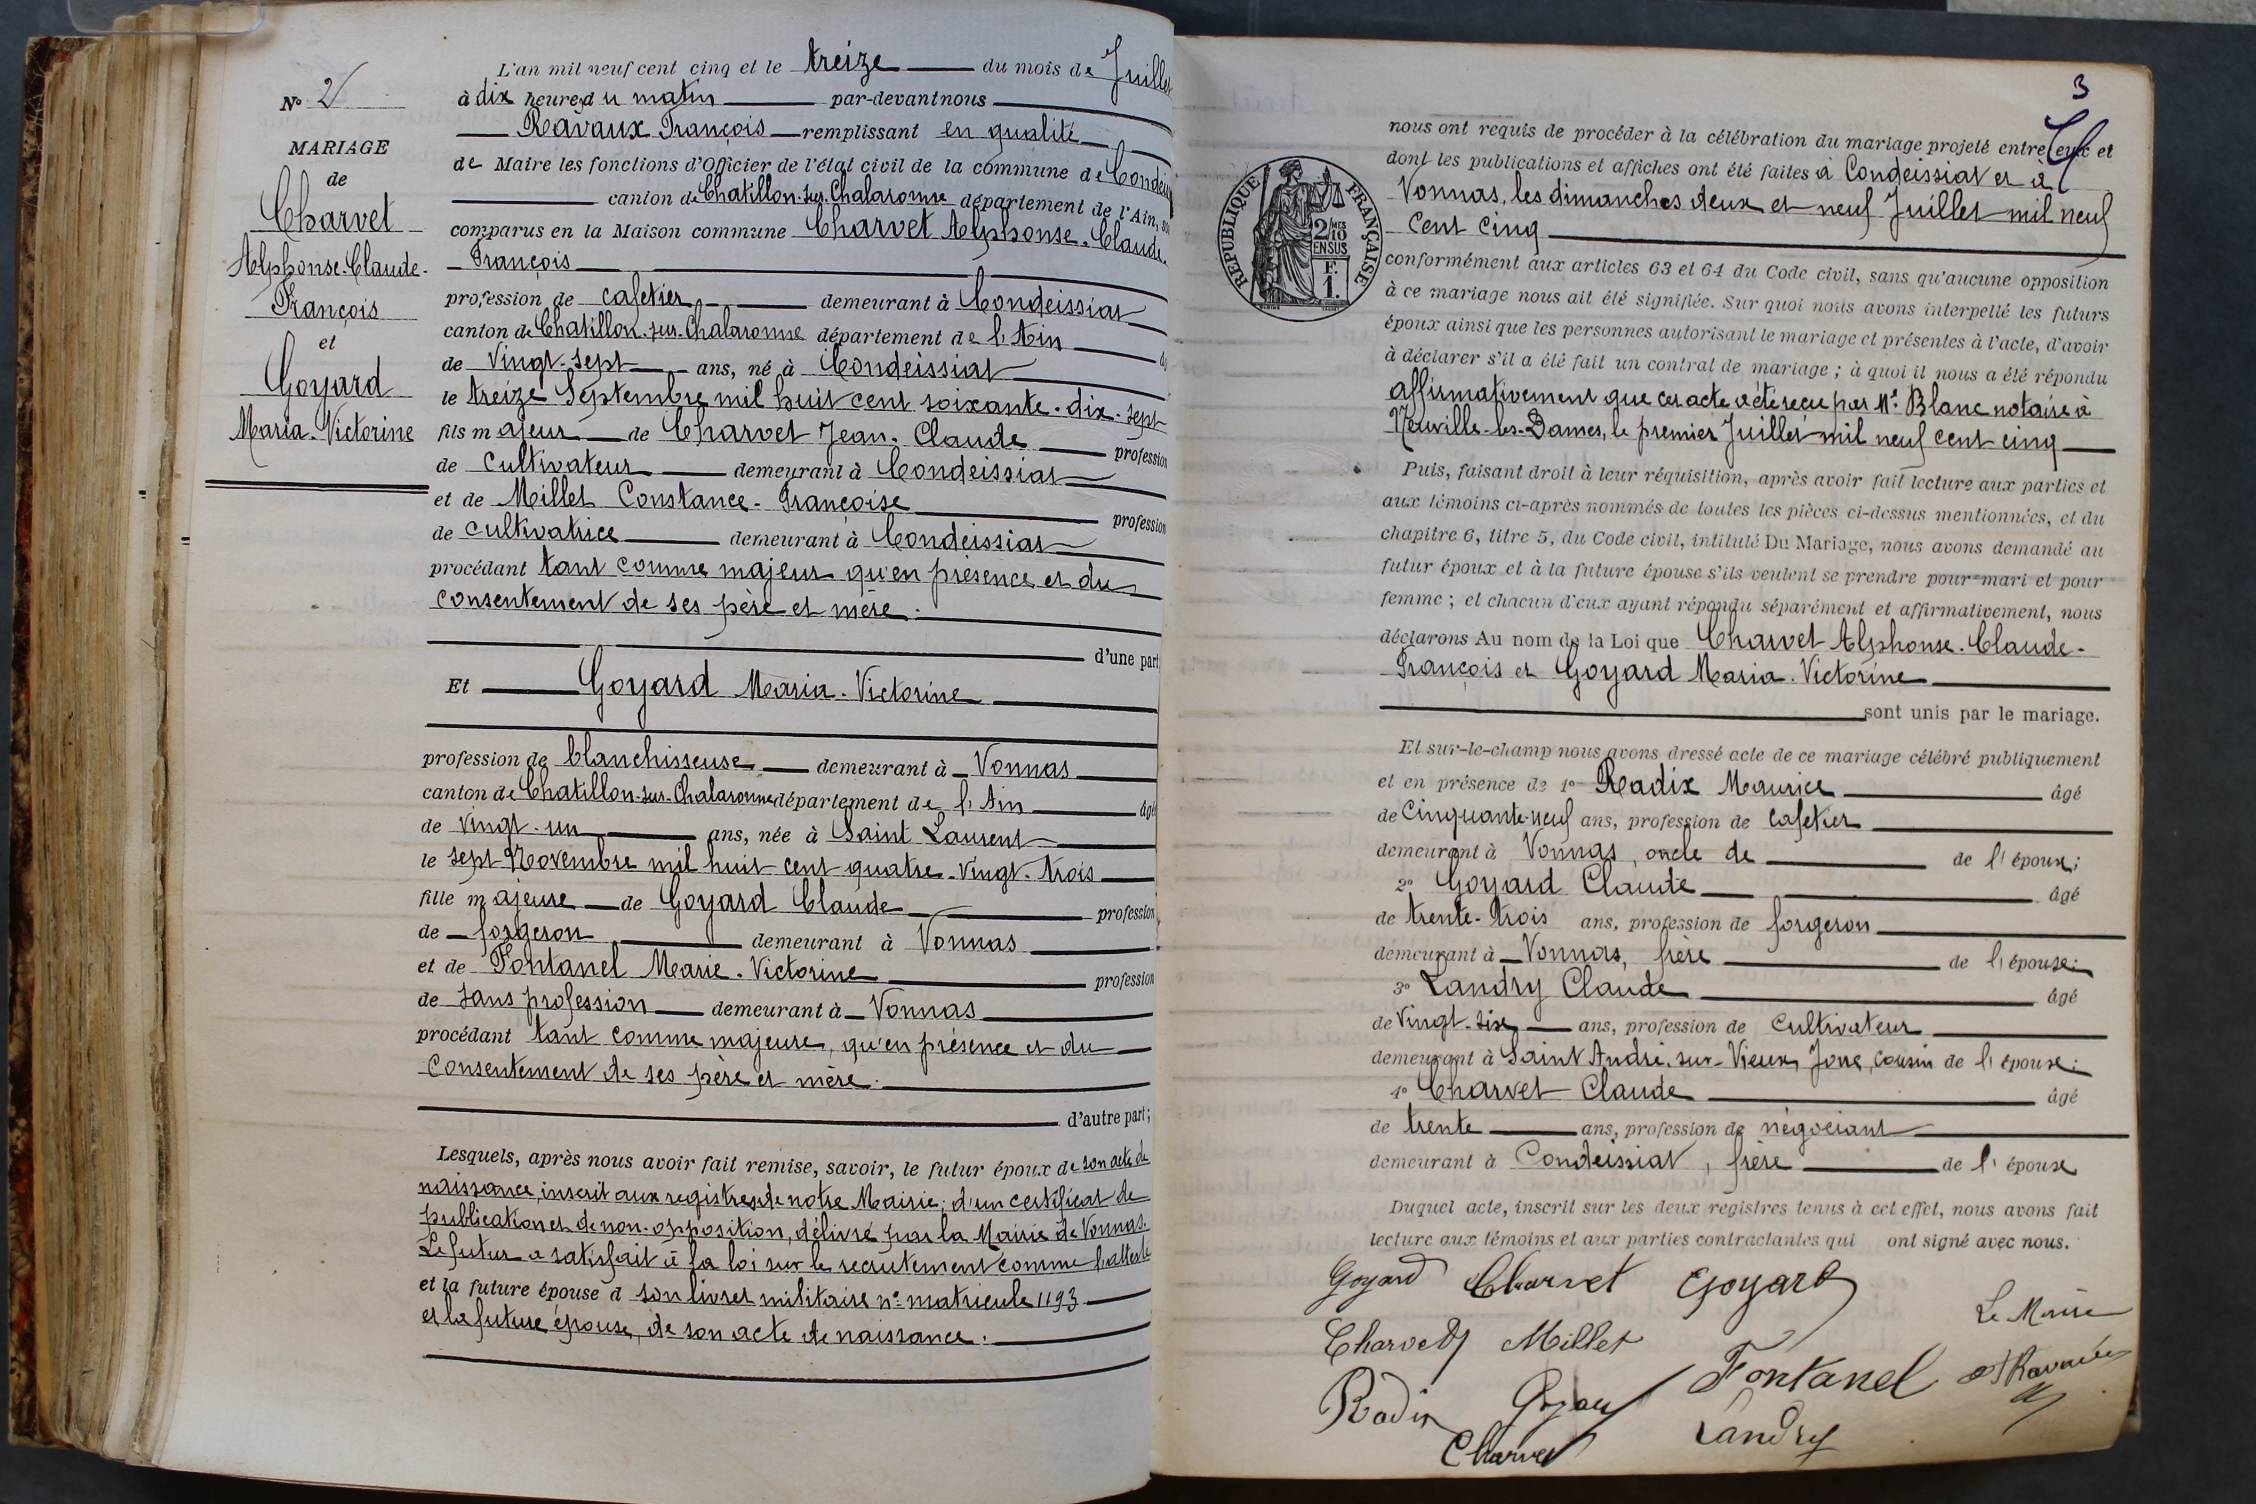 N° 2
MARIAGE
de
Charvet
Alphonse-Claude-
François
et
Goyard
Maria-Victorine
L'an mil neuf cent cinq et le treize du mois de Juillet
à dix heures du matin par-devant nous
Ravaux François remplissant en qualité
de Maire les fonctions d'Officier de l'état civil de la commune de Condeis
canton de Chatillon-sur-Chalaronne département de l'Ain, so
comparus en la Maison commune Charvet Alphonse-Claude-
François
profession de cafetier demeurant à Condeissiat
canton de Chatillon-sur-Chalaronne département de l'Ain
de vingt-sept ans, né à Condeissiat
le treize Septembre mil huit cent soixante-dix-sept
fils majeur de Charvet Jean-Claude profession
de cultivateur demeurant à Condeissiat
et de Millet Constance-Françoise profession
de cultivatrice demeurant à Condeissiat
procédant tant comme majeur qu'en présence et du
consentement de ses père et mère.
d'une part
Et Goyard Maria-Victorine
profession de blanchisseuse demeurant à Vonnas
canton de Chatillon-sur-Chalaronne département de l'Ain âgé
de vingt-un ans, née à Saint Laurent
le sept Novembre mil huit cent quatre-vingt-trois
fille majeure de Goyard Claude profession
de forgeron demeurant à Vonnas
et de Fontanel Marie-Victorine profession
de sans profession demeurant à Vonnas
procédant tant comme majeure, qu'en présence et du
consentement de ses père et mère.
d'autre part;
Lesquels, après nous avoir fait remise, savoir, le futur époux de son acte de
naissance, inscrit aux registres de notre Mairie; d'un certificat de
publication et de non-opposition, délivré par la Mairie de Vonnas.
Le futur a satisfait à la loi sur le recrutement comme l'atteste
et la future épouse d son livret militaire n° matricule 1193
et la future épouse, de son acte de naissance.
3
nous ont requis de procéder à la célébration du mariage projeté entre eux et
dont les publications et affiches ont été faites à Condeissiat et à
Vonnas, les dimanches deux et neuf Juillet mil neuf
cent cinq
RÉPUBLIQUE FRANÇAISE
2/10 MES
EN SUS
F.
1.
conformément aux articles 63 et 64 du Code civil, sans qu'aucune opposition
à ce mariage nous ait été signifiée. Sur quoi nous avons interpellé les futurs
époux ainsi que les personnes autorisant le mariage et présentes à l'acte, d'avoir
à déclarer s'il a été fait un contrat de mariage; à quoi il nous a été répondu
affirmativement que cet acte a été reçu par Mr. Blanc notaire à
Neuville-les-Dames, le premier Juillet mil neuf cent cinq
Puis, faisant droit à leur réquisition, après avoir fait lecture aux parties et
aux témoins ci-après nommés de toutes les pièces ci-dessus mentionnées, et du
chapitre 6, titre 5, du Code civil, intitulé Du Mariage, nous avons demandé au
futur époux et à la future épouse s'ils veulent se prendre pour mari et pour
femme; et chacun d'eux ayant répondu séparément et affirmativement, nous
déclarons Au nom de la Loi que Charvet Alphonse-Claude-
François et Goyard Maria-Victorine
sont unis par le mariage.
Et sur-le-champ nous avons dressé acte de ce mariage célébré publiquement
et en présence de 1° Radix Maurice âgé
de Cinquante-neuf ans, profession de cafetier
demeurant à Vonnas, oncle de de l'époux;
2° Goyard Claude âgé
de trente-trois ans, profession de forgeron
demeurant à Vonnas, frère de l'épouse;
3° Landry Claude âgé
de Vingt-six ans, profession de cultivateur
demeurant à Saint André-sur-Vieux Jonc, cousin de l'épouse;
4° Charvet Claude âgé
de trente ans, profession de négociant
demeurant à Condeissiat, frère de l'époux
Duquel acte, inscrit sur les deux registres tenus à cet effet, nous avons fait
lecture aux témoins et aux parties contractantes qui ont signé avec nous.
Goyard Charvet Goyard
Le Maire
Charvet Millet
Fontanel Ravaux
Radix Goyard
Landry
Charvet